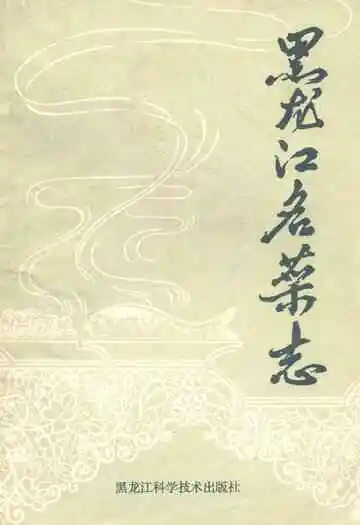 黑龙江名菜志
黑龙江科学技术出版社